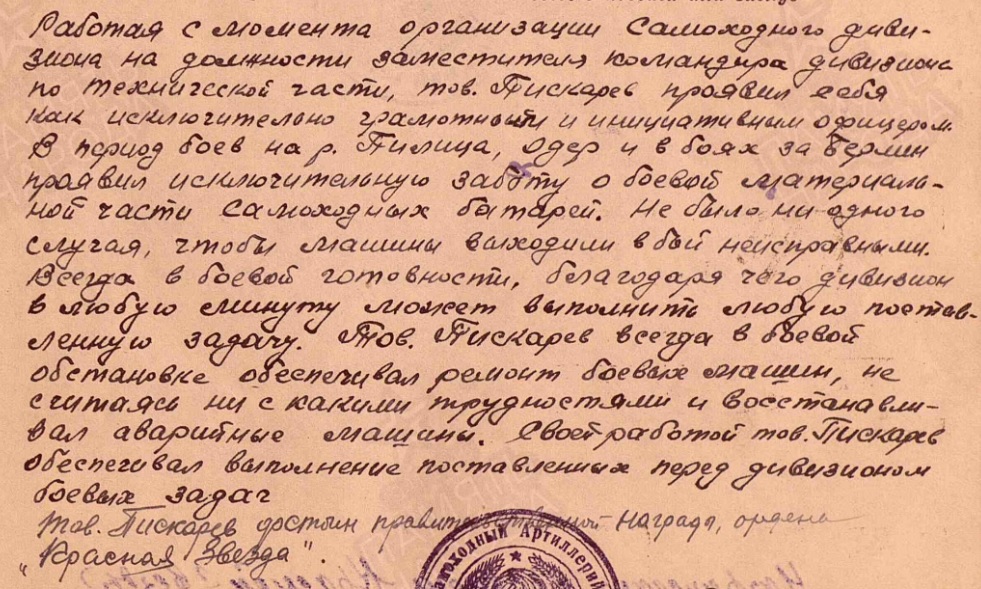 Работая с момента организации самоходного диви-
зиона на должности заместителя командира дивизиона
по технической части, тов. Пискарев проявил себя
как исключительно грамотный и инициативным офицером.
В период боев на р. Пилица, Одер и в боях за Берлин
проявил исключительную заботу о боевой материаль-
ной части самоходных батарей. Не было ни одного
случая, чтобы машины выходили в бой неисправными.
Всегда в боевой готовности, благодаря чего дивизион
в любую минуту может выполнить любую постав-
ленную задачу. Тов. Пискарев всегда в боевой
обстановке обеспечивал ремонт боевых машин, не
считаясь ни с какими трудностями и восстанавли-
вал аварийные машины. Своей работой тов. Пискарев
обеспечивал выполнение поставленных перед дивизионом
боевых задач
Тов. Пискарев достоин правительственной награды, ордена
"Красная Звезда".
Самоходный Артиллерий